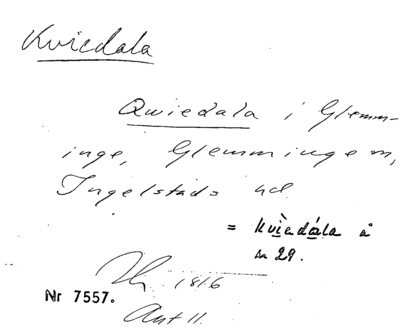 Kviedala
Qwiedala i Glemm-
inge, Glemminge sn,
Ingelstads hd.
= Kviedåla å
sn 29.
1816
Nr 7557.
Akt 11.